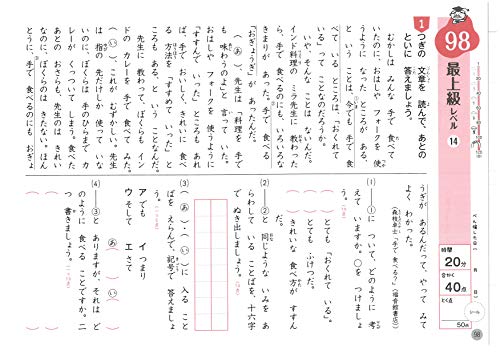 98
最上級
レベル
14
1 つぎの 文章を 読んで、あとの
といに 答えましょう。
むかしは みんな 手で 食べて
いたのに、おはしや フォークを 使う
ようになった ところが ある。
と いう ことは、今でも 手で 食
べて いる ところは、「おくれて
いる」って ことなのだろうか。
いや、そんな ことは ないんだ。
インド料理の ミラ先生に 教わった
ら、手で 食べるのにも、いろいろな
きまりが あった。手で 食べる
「おぎょうぎ」が あったんだ。
(あ)先生は、「料理を 手で
も 味わうのよ」と 言って いた。
おはしや フォークを 使うように
「すすんで いった」ところも あれ
ば、手で おいしく、きれいに 食べ
る 方法を 「すすめて いった」と
ころも ある、と いう ことなんだ。
先生に 教わって、ぼくらも イン
ドの カレーを 手で 食べて みた。
(い)、これが むずかしい。先生
は 指の 先だけしか 使って いな
いのに、ぼくらは 手のひらまで カ
レーが くっついて しまう。食べた
あとの おさらも、先生のは きれい
なのに、ぼくらのは きたない。ほん
とうに、手で 食べるのにも おぎょ
うぎが あるんだって、やって みて
よく わかった。
(森枝卓士「手で 食べる?」〈福音館書店〉)
(1) ―①に ついて、どのように 考
えて いますか。○を つけましょ
う。
( )とても おくれて いる。
( )とても ふけつだ。
( )きれいな 食べ方が すすん
だ。
(2) ―②と 同じような いみを あ
らわして いる ことばを、十六字
で ぬき出しましょう。
(3) (あ)・(い)に 入る こと
ばを えらんで、記号で 答えましょ
う。
ア でも イ つまり
ウ そして エ さて
あ( ) い( )
(4) ―③と ありますが、それは ど
のように 食べる ことですか。二
つ 書きましょう。
べん強した日( 月 日)
時間
20分
合かく
40点
とく点
50点
シール
98